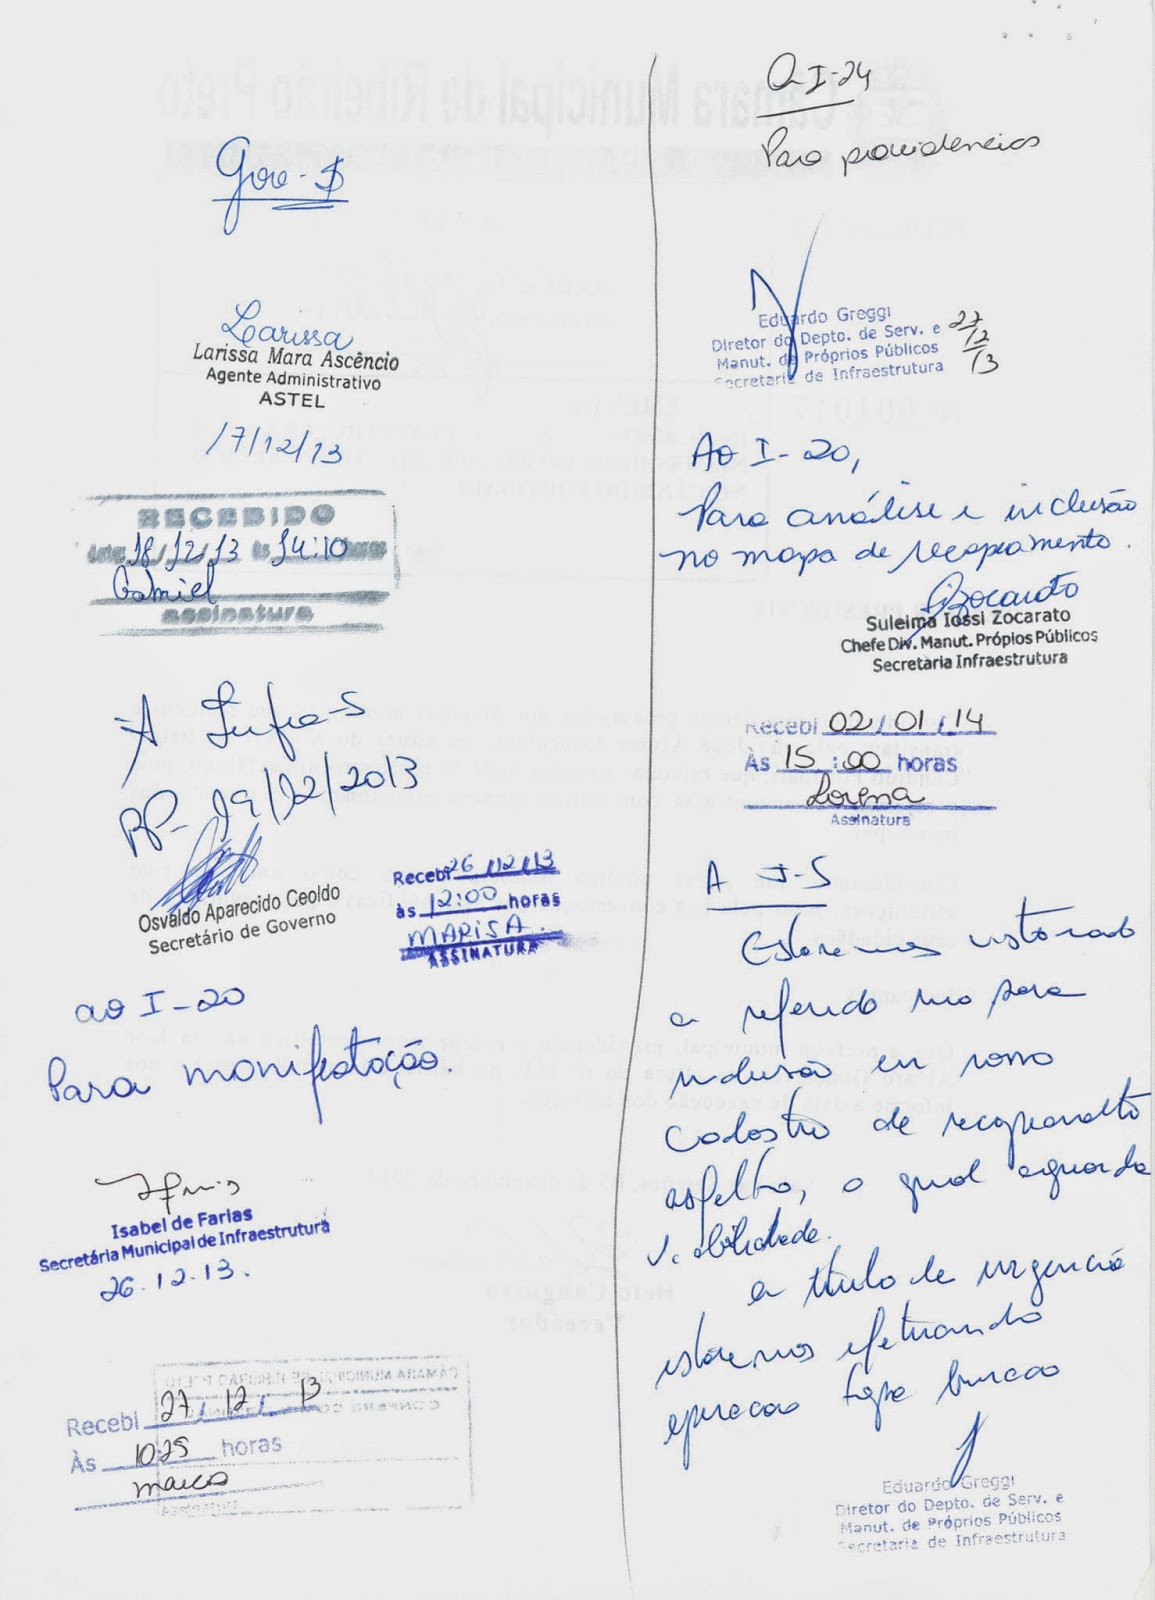 Gov-S
Larissa
Larissa Mara Ascêncio
Agente Administrativo
ASTEL
17/12/13
RECEBIDO
18/12/13 às 14:10
Gabriel
assinatura
A Infra-S
RP- 19/12/2013
Osvaldo Aparecido Ceoldo
Secretário de Governo
Recebi 26/12/13
às 12:00 horas
MARISA
ASSINATURA
ao I-20
Para manifestação.
Isabel de Farias
Secretária Municipal de Infraestrutura
26.12.13.
CÂMARA MUNICIPAL DE RIBEIRÃO PRETO
Recebi 27/12/13
Às 1025 horas
marcos
Assinatura
I-24
Para providencias
Eduardo Greggi
Diretor do Depto. de Serv. e
Manut. de Próprios Públicos
Secretaria de Infraestrutura
27/12/13
Ao I-20,
Para análise e inclusão
no mapa de recapeamento.
Zocarato
Suleima Iossi Zocarato
Chefe Div. Manut. Própios Públicos
Secretaria Infraestrutura
Recebi 02/01/14
Às 15:00 horas
Lorena
Assinatura
A I-S
Estaremos vistoriado
a referido rua para
inclusão em nosso
cadastro de
asfaltico, o qual aguarda
viabilidade.
a titulo de urgencia
estaremos efetuando
operacao tapa buracao
Eduardo Greggi
Diretor do Depto. de Serv. e
Manut. de Próprios Públicos
Secretaria de Infraestrutura